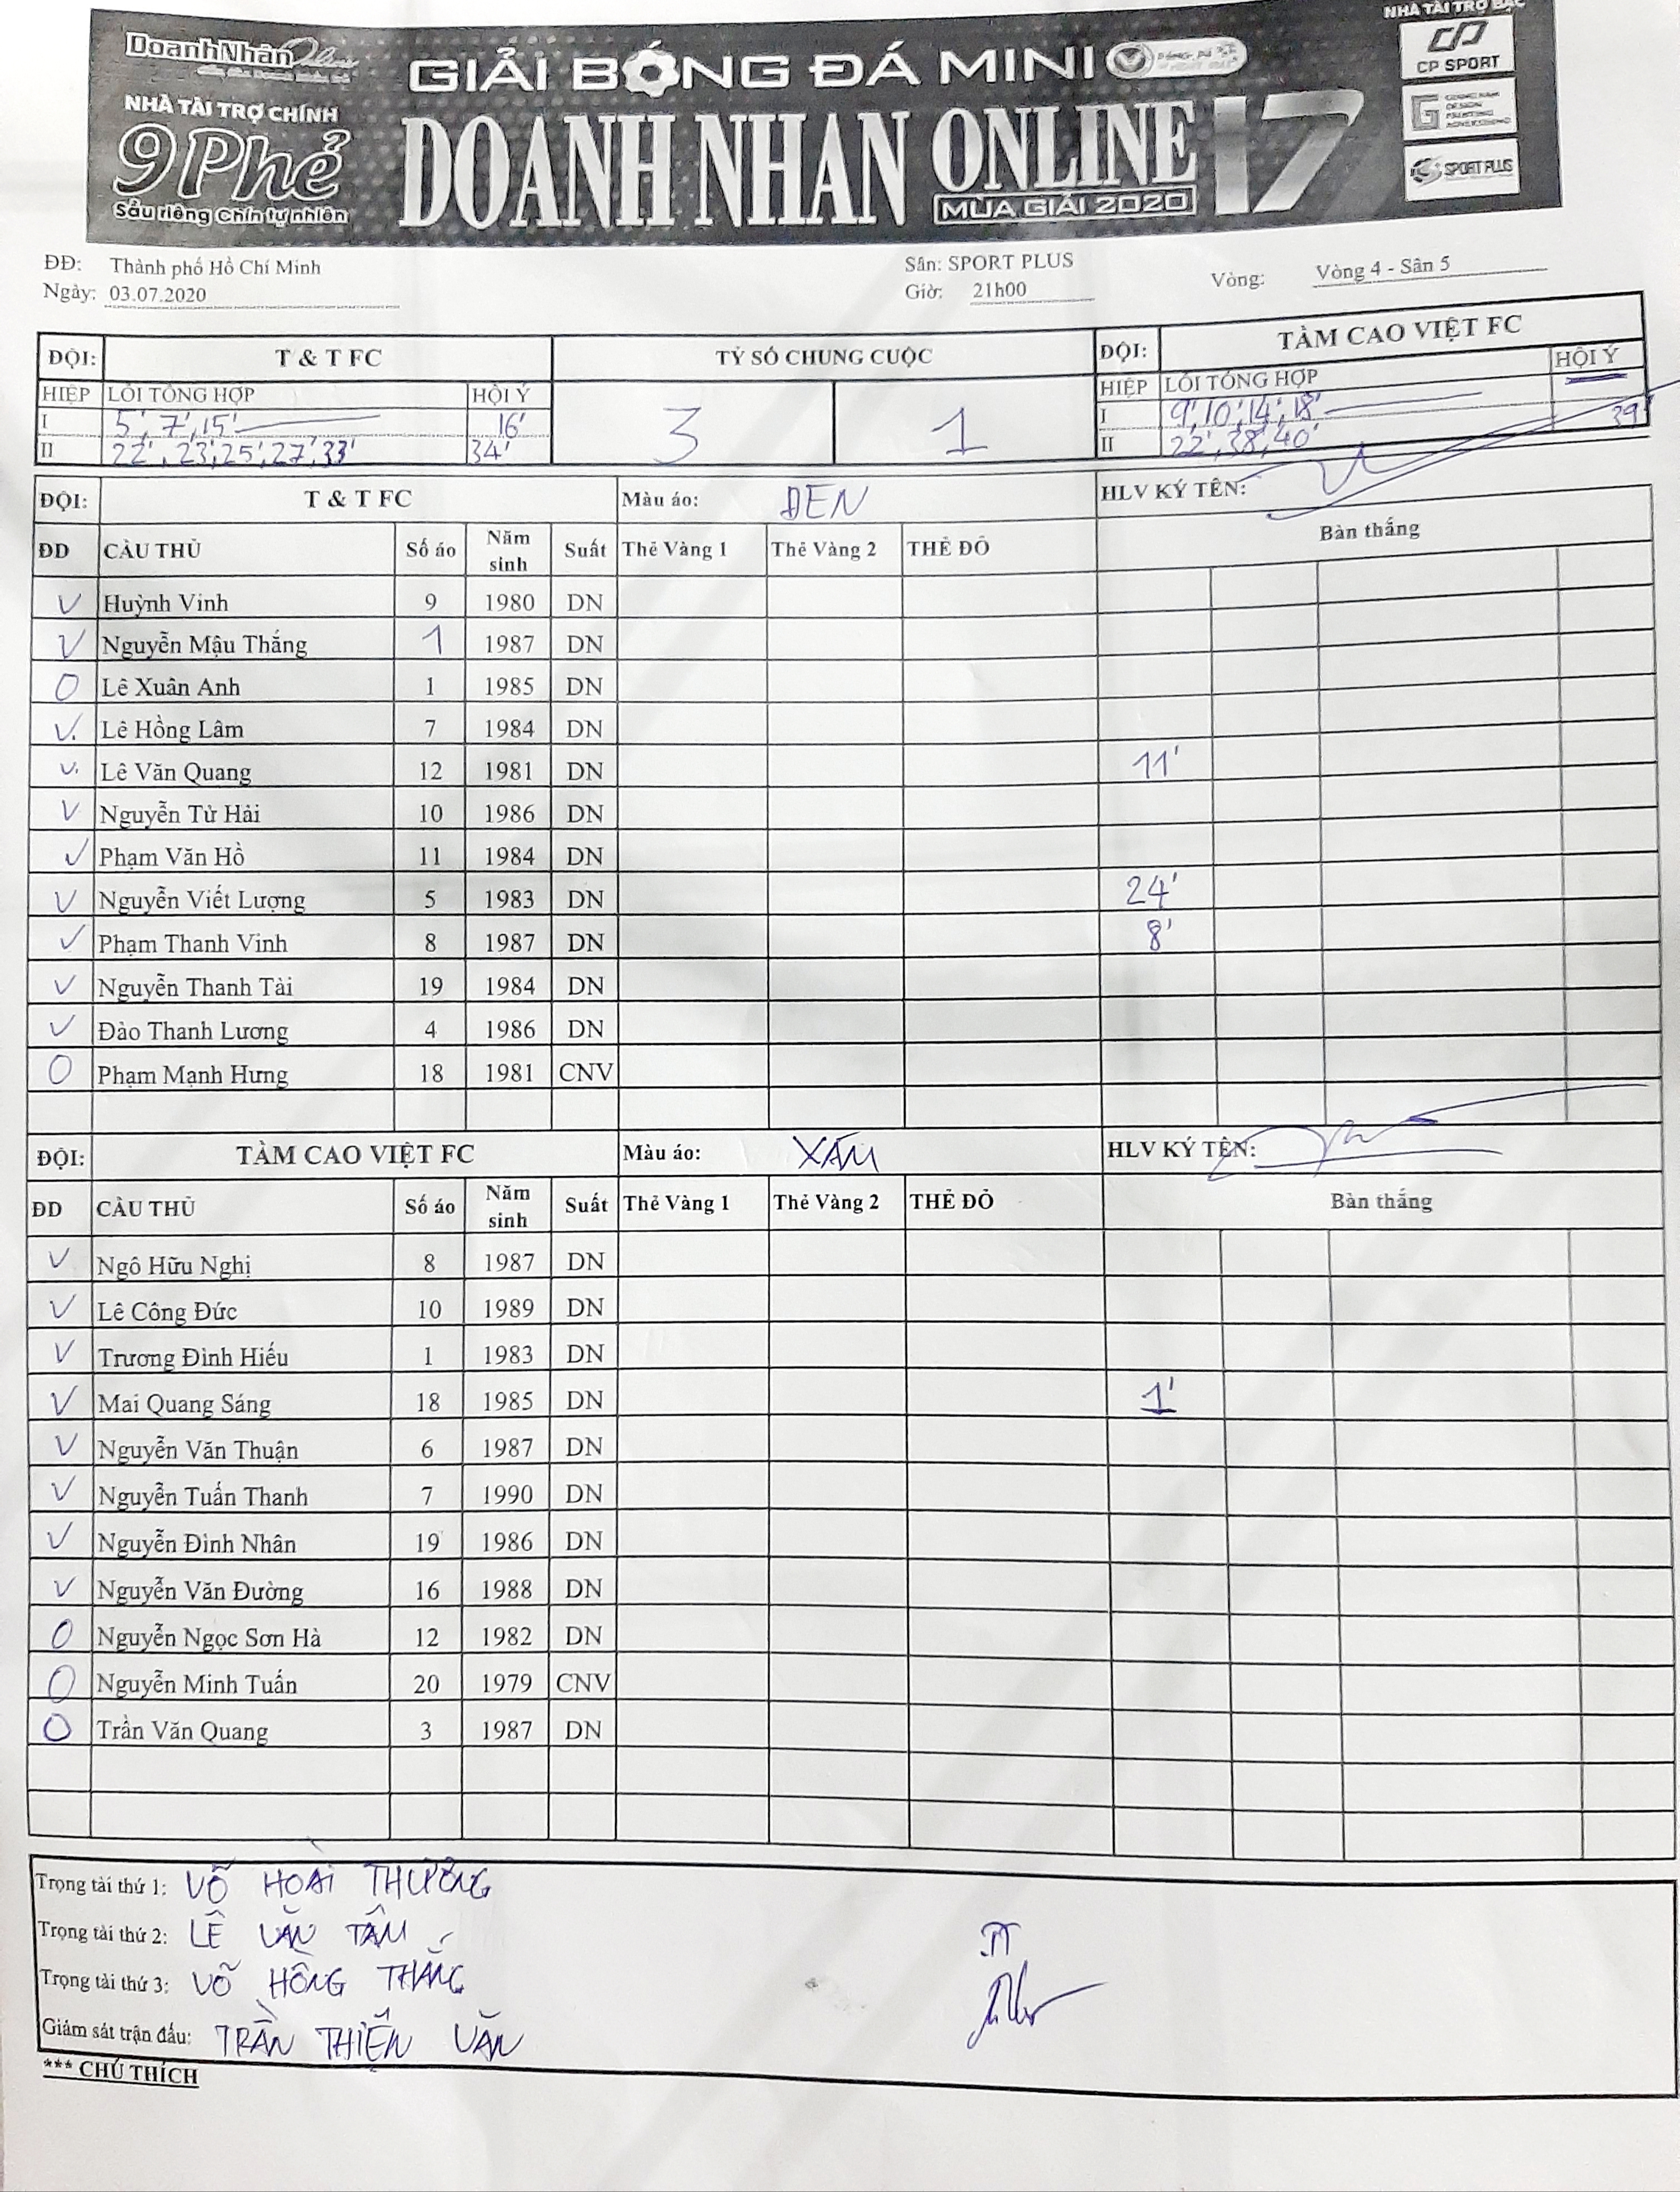 NHÀ TÀI TRỢ BẠC
DoanhNhân Online
GIẢI BÓNG ĐÁ MINI
CP SPORT
NHÀ TÀI TRỢ CHÍNH
9Phẻ
Sầu riêng Chín tự nhiên
DOANH NHAN ONLINE 17
MÙA GIẢI 2020
SPORT PLUS
ĐĐ: Thành phố Hồ Chí Minh Sân: SPORT PLUS Vòng: Vòng 4 - Sân 5
Ngày: 03.07.2020 Giờ: 21h00
ĐỘI: T & T FC TỶ SỐ CHUNG CUỘC ĐỘI: TẦM CAO VIỆT FC
HIỆP LỖI TỔNG HỢP HỘI Ý 3 1 HIỆP LỖI TỔNG HỢP HỘI Ý
I 5', 7', 15' 16' I 9', 10', 14', 18'
II 22', 23', 25', 27', 33' 34' II 22', 38', 40' 39'
ĐỘI: T & T FC Màu áo: ĐEN HLV KÝ TÊN:
ĐD CẦU THỦ Số áo Năm sinh Suất Thẻ Vàng 1 Thẻ Vàng 2 THẺ ĐỎ Bàn thắng
V Huỳnh Vinh 9 1980 DN
V Nguyễn Mậu Thắng 1 1987 DN
O Lê Xuân Anh 1 1985 DN
V Lê Hồng Lâm 7 1984 DN
V Lê Văn Quang 12 1981 DN 11'
V Nguyễn Từ Hải 10 1986 DN
V Phạm Văn Hồ 11 1984 DN
V Nguyễn Viết Lượng 5 1983 DN 24'
V Phạm Thanh Vinh 8 1987 DN 8'
V Nguyễn Thanh Tài 19 1984 DN
V Đào Thanh Lương 4 1986 DN
O Phạm Mạnh Hưng 18 1981 CNV
ĐỘI: TẦM CAO VIỆT FC Màu áo: XÁM HLV KÝ TÊN:
ĐD CẦU THỦ Số áo Năm sinh Suất Thẻ Vàng 1 Thẻ Vàng 2 THẺ ĐỎ Bàn thắng
V Ngô Hữu Nghị 8 1987 DN
V Lê Công Đức 10 1989 DN
V Trương Đình Hiếu 1 1983 DN
V Mai Quang Sáng 18 1985 DN 1'
V Nguyễn Văn Thuận 6 1987 DN
V Nguyễn Tuấn Thanh 7 1990 DN
V Nguyễn Đình Nhân 19 1986 DN
V Nguyễn Văn Đường 16 1988 DN
O Nguyễn Ngọc Sơn Hà 12 1982 DN
O Nguyễn Minh Tuấn 20 1979 CNV
O Trần Văn Quang 3 1987 DN
Trọng tài thứ 1: VÕ HOÀI THƯƠNG
Trọng tài thứ 2: LÊ VĂN TÂM
Trọng tài thứ 3: VÕ HỒNG THẮNG
Giám sát trận đấu: TRẦN THIỆN VĂN
*** CHÚ THÍCH